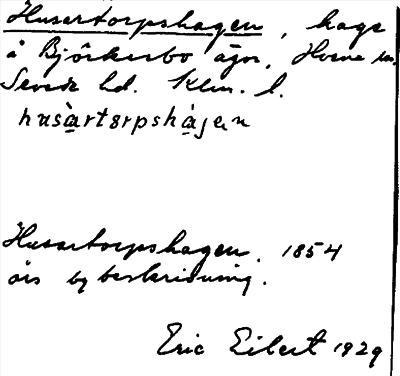 Husartorpshagen, hage
å Björkerbo ägor, Horns sn.
Sevede hd. Klm. l.
husàrtorpshàgen
Husartorpshagen. 1854
års bybeskrivning.
Eric Eilert 1929